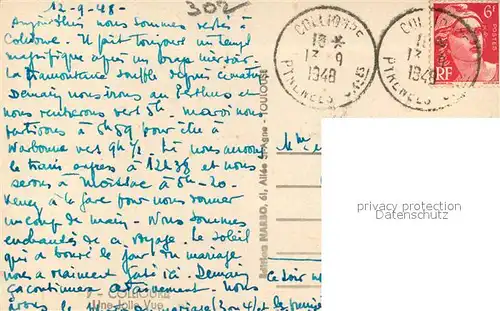 12-9-48-
302
Aujourd'hui nous sommes restés à
Collioure. Il fait toujours un temps
magnifique après un
La tramontane souffle depuis ce matin
Demain nous irons au Perthus et
nous rentrerons vers 5h. nous
partirons à 6h59 pour être à
Narbonne vers 9h 1/2. Là nous aurons
le train express à 12h38 et nous
serons à Moissac à 5h-20-
Venez à la gare pour nous donner
un coup de main - Nous sommes
enchantés de ce voyage. Le soleil
qui a boudé le jour du mariage
nous a vraiment gâté ici. Demain
ça continuera certainement. Nous
COLLIOURE
18 *
13 - 9
1948
PYRENEES ORles
COLLIOURE
13 9
1948
PYRENEES
6F
POSTES
RF
Edition NARBO, 61, Allée - TOULOUSE
Mme
privacy protection
Datenschutz
COLLIOURE
Une Jolie Vue
Ce soir